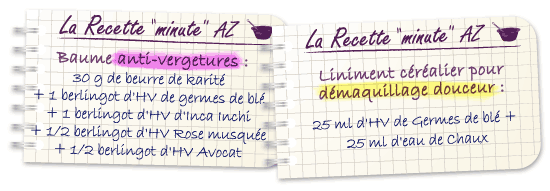 La Recette "minute" AZ
Baume anti-vergetures :
30 g de beurre de karité
+ 1 berlingot d'HV de germes de blé
+ 1 berlingot d'HV d'Inca Inchi
+ 1/2 berlingot d'HV Rose musquée
+ 1/2 berlingot d'HV Avocat
La Recette "minute" AZ
Liniment céréalier pour
démaquillage douceur :
25 ml d'HV de Germes de blé +
25 ml d'eau de Chaux